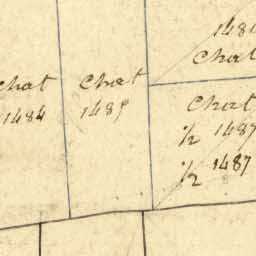 Chat
1484
Chat
Chat
Chat
½ 1487
½ 1487